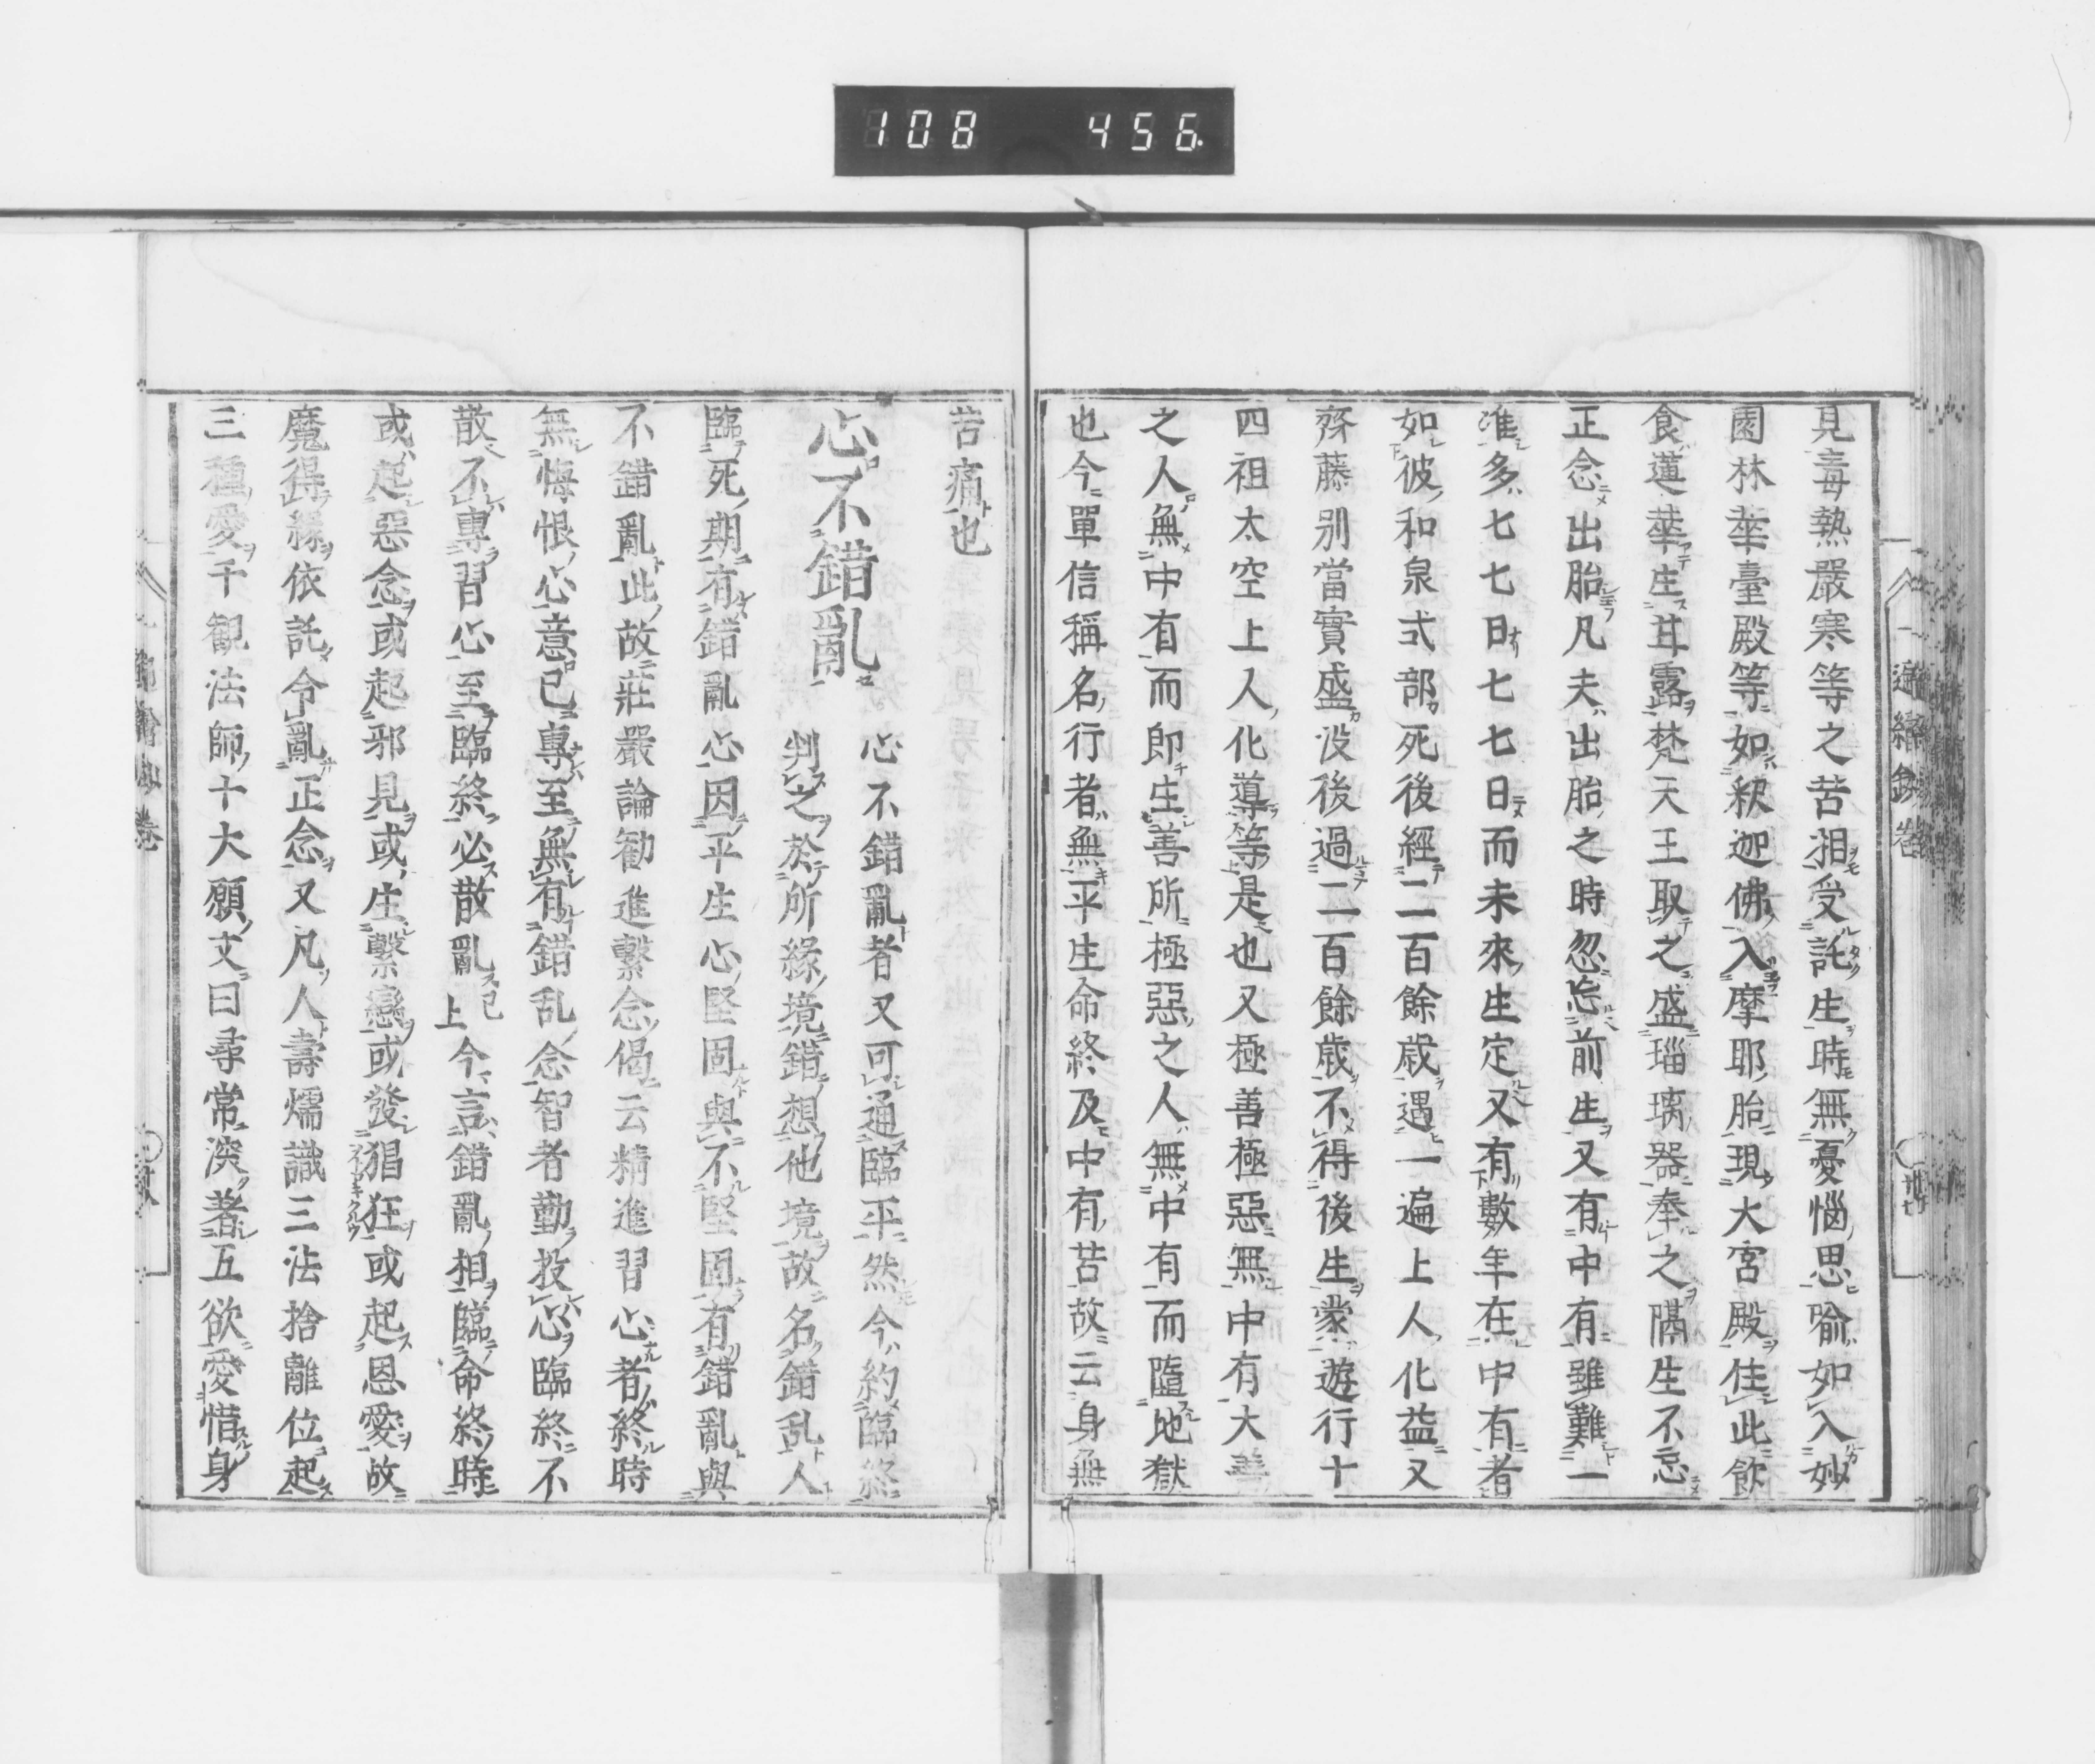 108 456
見毒熱嚴寒等之苦相受託生時無憂惱思喩如入妙
園林華臺殿等如釈迦佛入摩耶胎現大宮殿住此飲
食蓮華庄甘露梵天王取之盛瑠璃器奉之隣生不忘
正念出胎凡夫出胎之時忽忘前生又有中有雖難一
准多七七日七七日而未來生定又有數年在中有者
如彼和泉式部死後經二百餘歳遇一遍上人化益又
齊藤別當實盛没後過二百餘歳不得後生蒙遊行十
四祖太空上人化導等是也又極善極惡無中有大善
之人無中有而即生善所極惡之人無中有而隨地獄
也今單信稱名行者無平生命終及中有苦故云身無
苦痛也
心不錯亂 心不錯亂者又可通臨平然今約臨終
判之於所緣境錯想他境故名錯乱人
臨死期有錯亂心因平生心堅固與不堅固有錯亂與
不錯亂此故莊嚴論勧進繋念偈云精進習心者終時
無悔恨心意已專至無有錯乱念智者勤投心臨終不
散不專習心至臨終必散亂已上今言錯亂相臨命終時
或起惡念或起邪見或生繋戀或發猖狂或起恩愛故
魔得緣依託令亂正念又凡人壽燸識三法捨離位起
三種愛千観法師十大願文曰尋常深著五欲愛惜身